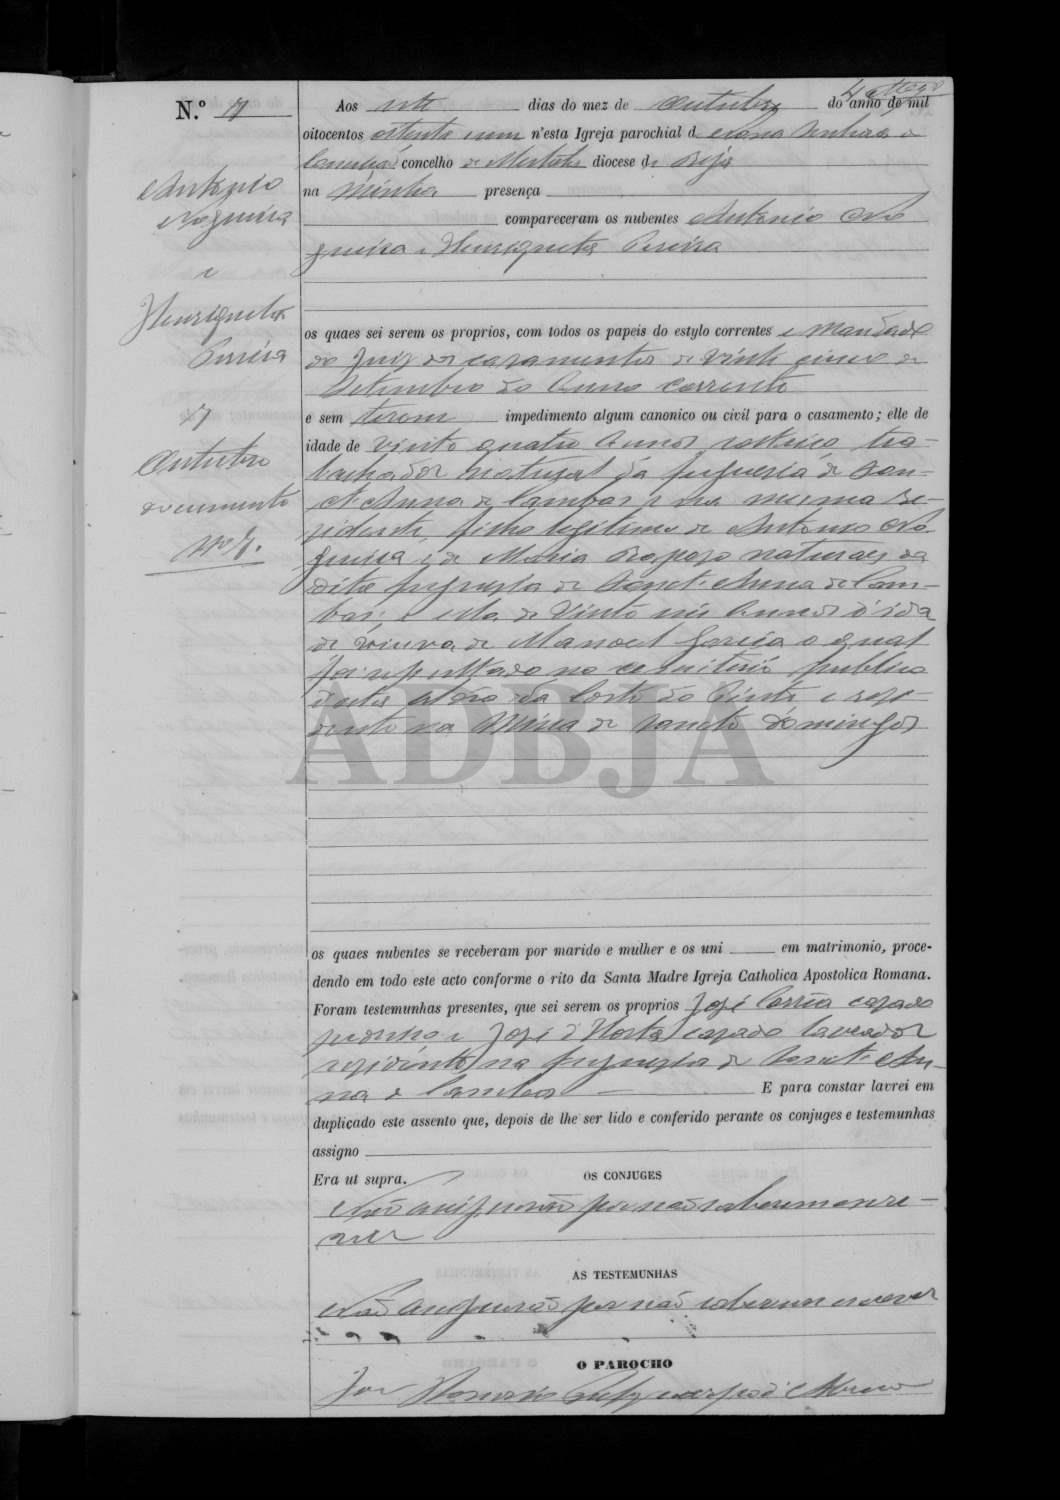 N.º 7
Aos sete dias do mez de Outubro do anno de mil
oitocentos oitenta e um n'esta Igreja parochial d Nossa Senhora
concelho de Mertola diocese de Beja
na minha presença
compareceram os nubentes Antonio No
gueira e Henriqueta Pereira
os quaes sei serem os proprios, com todos os papeis do estylo correntes e Mandado
do Juiz de casamentos de vinte cinco de
Setembro do Anno corrente
e sem terem impedimento algum canonico ou civil para o casamento; elle de
idade de vinte quatro Annos solteiro tra-
balhador natural da freguesia de San-
ct Anna de Cambas e na mesma re-
sidente, filho legitimo de Antonio No
gueira, e de Maria Raposo naturaes da
dita freguesia de Sanct Anna de Cam-
bas; e ella de Vinte seis Annos d'ida
de viuva de Manoel Garcia o qual
foi sepultado no cemiterio publico
da Corte do Pinto e resi-
dente na Mina de Sancto Domingos
os quaes nubentes se receberam por marido e mulher e os uni em matrimonio, proce-
dendo em todo este acto conforme o rito da Santa Madre Igreja Catholica Apostolica Romana.
Foram testemunhas presentes, que sei serem os proprios José Corrêa casado
e José d'Horta casado lavrador
residentes na freguesia de Sanct An-
na de Cambas E para constar lavrei em
duplicado este assento que, depois de lhe ser lido e conferido perante os conjuges e testemunhas
assigno
Era ut supra.
OS CONJUGES
Não assignarão por não saberem escre-
ver
AS TESTEMUNHAS
Não assignarão por não saberem escrever
O PAROCHO
Antonio
Nogueira
e
Henriqueta
Pereira
7
Outubro
documento
nº 7.
ADBJA